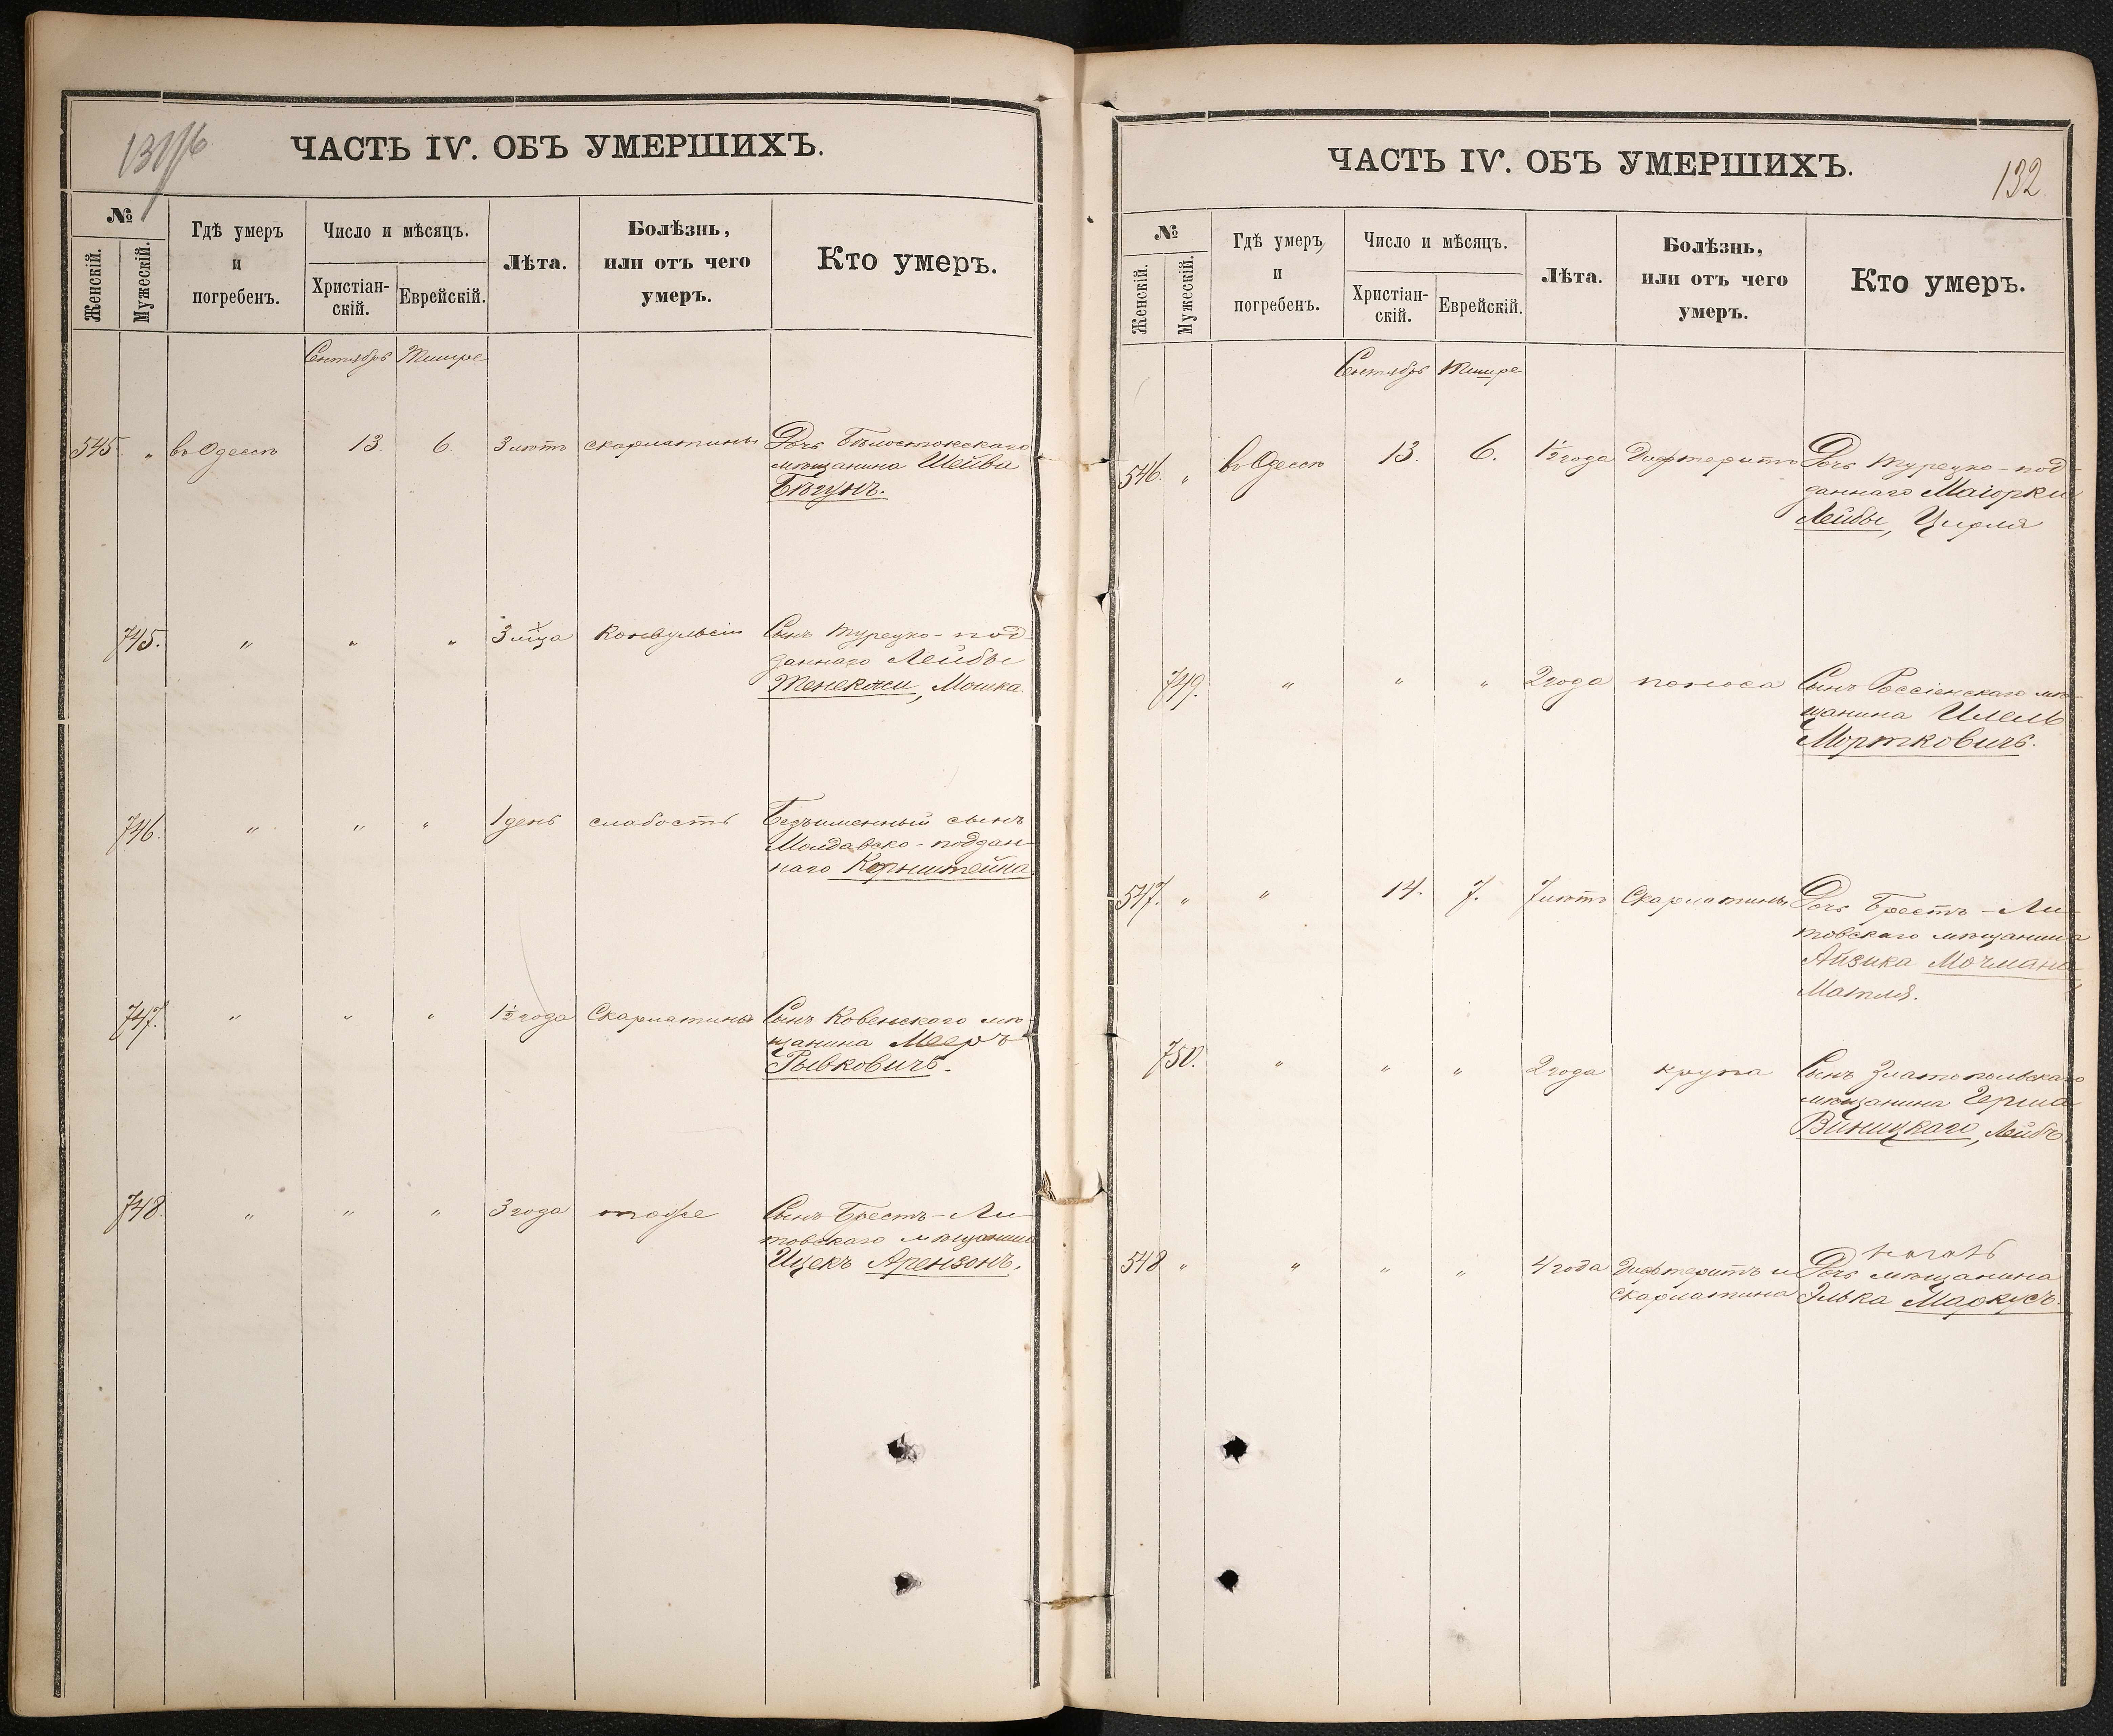 ЧАСТЬ IV. ОБЪ УМЕРШИХЪ.
№
Женскій.
Мужескій.
Гдѣ умеръ
и
погребенъ.
Число и мѣсяцъ.
Христіан-
скій.
Еврейскій.
Лѣта.
Болѣзнь,
или отъ чего
умеръ.
Кто умеръ.
Сентябрь Тишре
545 " въ Одессѣ 13. 6. 3 лѣтъ скарлатины Дочь Бѣлостокскаго
мѣщанина Шейва
Бѣгунъ.
745. " " " 3 мѣца Конвульсіи Сынъ Турецко-под-
даннаго Лейбы
Тенекжи, Мошка.
746. " " " 1 день слабость Безъименный сынъ
Молдавско-поддан-
наго Корнштейна
747. " " " 1½ года Скарлатина Сынъ Ковенскаго мѣ-
щанина Мееръ
Рывковичъ.
748. " " " 3 года тоже Сынъ Брестъ-Ли-
товскаго мѣщанина
Ицекъ Арензонъ.
ЧАСТЬ IV. ОБЪ УМЕРШИХЪ.
132.
№
Женскій.
Мужескій.
Гдѣ умеръ
и
погребенъ.
Число и мѣсяцъ.
Христіан-
скій.
Еврейскій.
Лѣта.
Болѣзнь,
или отъ чего
умеръ.
Кто умеръ.
Сентябрь Тишре
546. " въ Одессѣ 13. 6. 1½ года Дифтеритъ Дочь Турецко-под-
даннаго Маіорки
Лейбы, Цирля
749. " " " 2 года поноса Сынъ Россіенскаго мѣ-
щанина Илель
Мортковичъ.
547. " " 14. 7. 7 лѣтъ Скарлатины Дочь Брестъ-Ли-
товскаго мѣщанина
Айзика Мочмана
Матля.
750. " " " 2 года крупа Сынъ Златопольскаго
мѣщанина Герша
Виницкаго, Лейбъ
548 " " " " 4 года Дифтеритъ и Дочь мѣщанина
Скарлатина Элька Маркусъ.